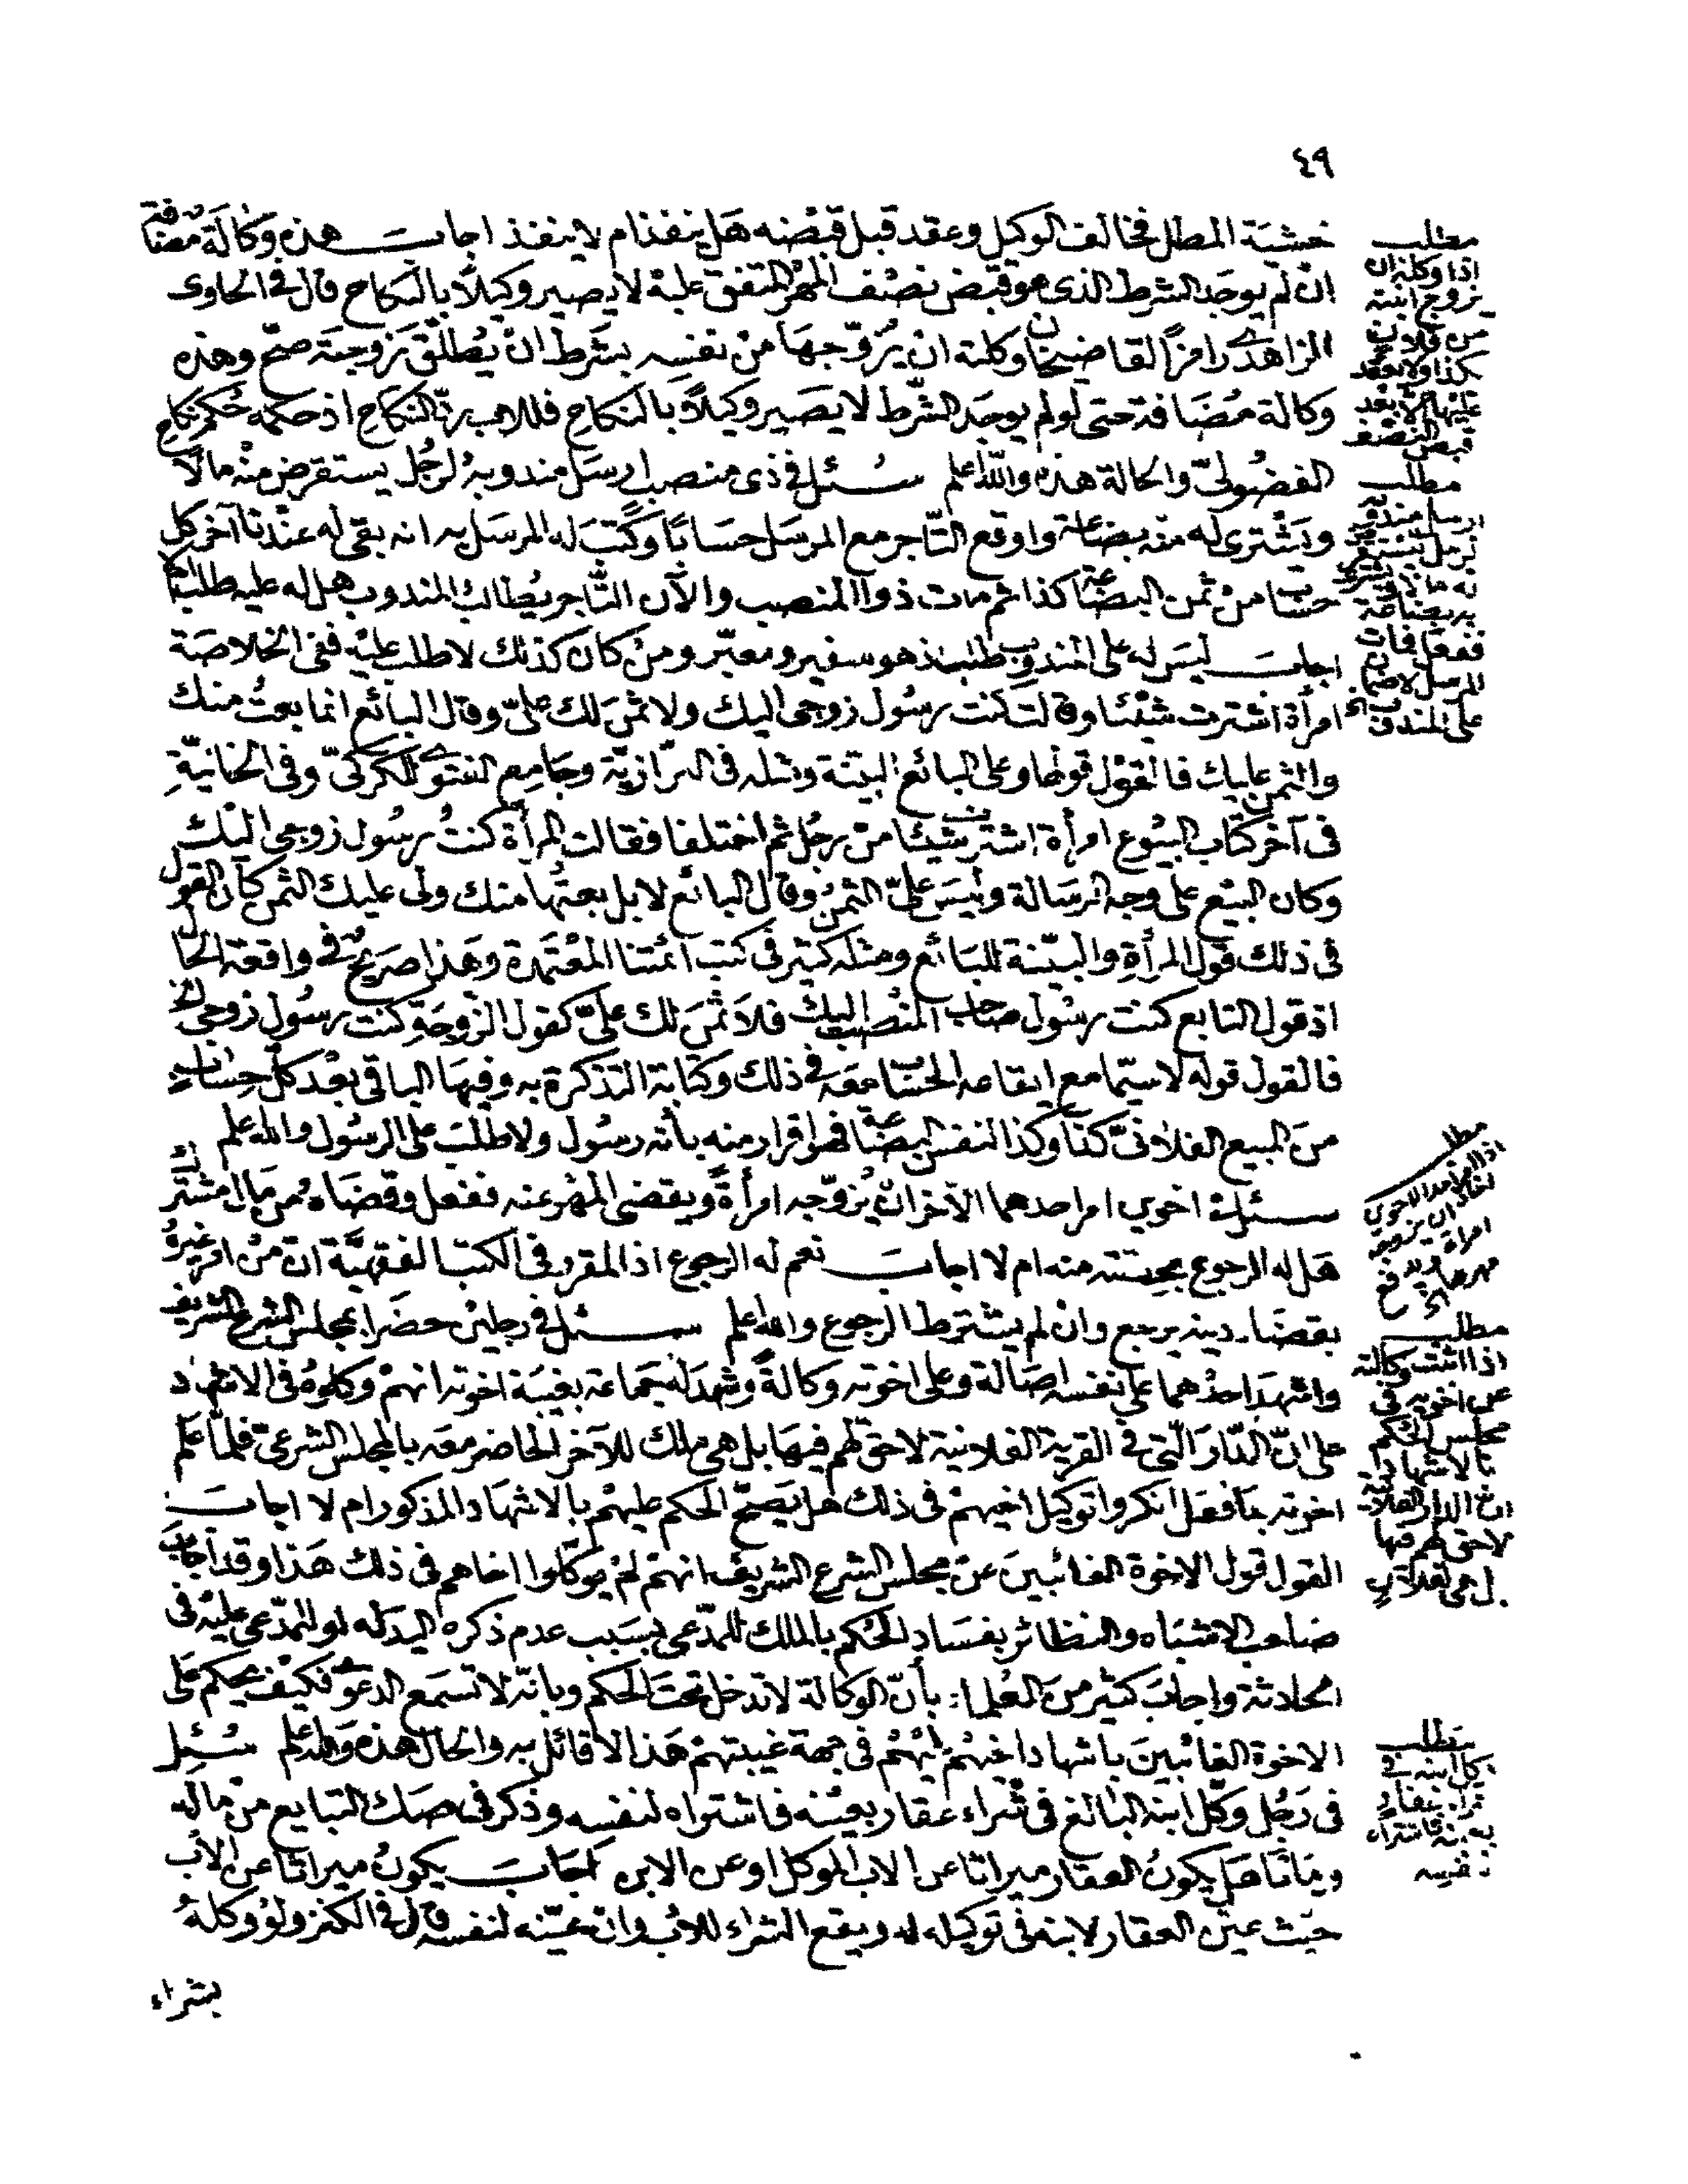 ٤٩
خشية المطل فخالف الوكيل وعقد قبل قبضه هل ينفذ ام لا ينفذ اجاب هذه وكالة مضافة
ان لم يوجد الشرط الذى هو قبض نصف المهر المتفق عليه لا يصير وكيلا بالنكاح قال في الحاوى
الزاهدى رامزا لقاضيخان وكلته ان يزوجها من نفسه بشرط ان يطلق زوجته صح وهذه
وكالة مضافة حتى لو لم يوجد الشرط لا يصير وكيلا بالنكاح فللاب رد النكاح اذ حكمه حكم نكاح
الفضولي والحالة هذه والله اعلم سئل في ذى منصب ارسل مندوبه لرجل يستقرض منه مالا
ويشترى له منه بضاعة واوقع التاجر مع المرسل حسابا وكتب له المرسل به انه بقى له عندنا آخر كل
حساب من ثمن البضاعة كذا ثم مات ذو المنصب والآن التاجر يطالب المندوب هل له عليه طلب ام لا
اجاب ليس له على المندوب طلب اذ هو سفير ومعبر ومن كان كذلك لا طلب عليه ففى الخلاصة
امرأة اشترت شيئا وقالت كنت رسول زوجى اليك ولا ثمن لك علي وقال البائع انما بعت منك
والثمن عليك فالقول قولها وعلى البائع البينة ومثله فى البزازية وجامع الفتوى للكركى وفى الخانية
فى آخر كتاب البيوع امرأة اشترت شيئا من رجل ثم اختلفا فقالت المرأة كنت رسول زوجى اليك
وكان البيع على وجه الرسالة وليس علي الثمن وقال البائع لا بل بعتها منك ولى عليك الثمن كان القول
فى ذلك قول المرأة والبينة للبائع ومثله كثير فى كتب ائمتنا المعتمدة وهذا صريح في واقعة الحال
اذ قول التابع كنت رسول صاحب المنصب اليك فلا ثمن لك علي كقول الزوجة كنت رسول زوجى الخ
فالقول قوله لاسيما مع ايقاعه الحساب معه في ذلك وكتابة التذكرة به وفيها الباقى بعد كل حساب
من المبيع الفلانى كذا وكذا لنفس البضاعة فهو اقرار منه بأنه رسول ولا طلب على الرسول والله اعلم
سئل فى اخوين امر احدهما الآخر ان يزوجه امرأة ويقضى المهر عنه ففعل وقضاه من مال مشترك
هل له الرجوع بحصته منه ام لا اجاب نعم له الرجوع اذ المقرر فى الكتب الفقهية ان من امر غيره
بقضاء دينه يرجع وان لم يشترط الرجوع والله اعلم سئل في رجلين حضرا بمجلس الشرع الشريف
واشهد احدهما على نفسه اصالة وعلى اخوته وكالة وشهد له جماعة بغيبة اخوته انهم وكلوه فى الاشهاد
على ان الدار التى في القرية الفلانية لا حق لهم فيها بل هى ملك للآخر الحاضر معه بالمجلس الشرعى فلما علم
اخوته بما فعل انكروا توكيل اخيهم فى ذلك هل يصح الحكم عليهم بالاشهاد المذكور ام لا اجاب
القول قول الاخوة الغائبين عن مجلس الشرع الشريف انهم لم يوكلوا اخاهم فى ذلك هذا وقد اجاب
صاحب الاشباه والنظائر بفساد الحكم بالملك للمدعى بسبب عدم ذكره اليد له او للمدعى عليه فى
الحادثة واجاب كثير من العلماء بأن الوكالة لا تدخل تحت الحكم وبانه لا تسمع الدعوى فكيف يحكم على
الاخوة الغائبين باشهاد اخيهم في جهة غيبتهم هذا لا قائل به والحال هذه والله اعلم سئل
فى رجل وكل ابنه البالغ فى شراء عقار بعينه فاشتراه لنفسه وذكر فى صك التبايع من ماله
وماتا هل يكون العقار ميراثا عن الاب الموكل او عن الابن اجاب يكون ميراثا عن الاب
حيث عين العقار لابنه فى توكيله له ويقع الشراء للاب وان عينه لنفسه قال في الكنز ولو وكله
بشراء
مطلب
اذا وكله ان
يزوج ابنته
من فلان
بكذا ولا يعقد
عليها الا بعد
قبض النصف
مطلب
ارسل مندوبه
لرجل يستقرض
له مالا ويشترى
له بضاعة
ففعل فمات
المرسل لا ضمان
على المندوب الخ
مطلب
امرأة
مهرها
مطلب
اذا اثبت وكالته
عن اخويه فى
مجلس الحكم
بالاشهاد
ان الدار الفلانية
لا حق لهم فيها
بل هى لفلان
مطلب
وكل ابنه في
شراء عقار
بعينه فاشتراه
لنفسه